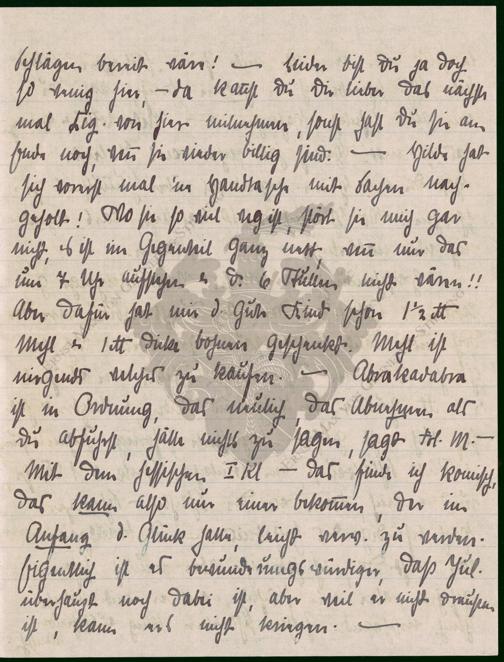 Schlägen bereit wäre! — Leider bist du ja doch
so wenig hier, — da kannst du dir lieber das nächste
mal Zig. von hier mitnehmen, sonst hast du sie am
Ende noch, wenn sie wieder billig sind. — Hilde hat
sich vorerst mal 'ne Handtasche mit Sachen nach-
geholt! Wo sie so viel weg ist, stört sie mich gar
nicht, es ist im Gegenteil ganz nett, wenn nur das
um 7 Uhr aufstehen & d. 6 Stullen nicht wären!!
Aber dafür hat mir d. gute Kind schon 1½ ℔
Mehl & 1 ℔ dicke bohnen geschenkt. Mehl ist
nirgends welches zu kaufen. — Abrakadabra
ist in Ordnung, das neulich, das Abnehmen als
du abfuhrst, hätte nichts zu sagen, sagt Frl. M. —
Mit dem hessischen I Kl — das finde ich komisch,
das kann also nur einer bekommen, der im
Anfang d. Glück hatte, leicht verw. zu werden.
Eigentlich ist es bewunderungswürdiger, daß Jul.
überhaupt noch dabei ist, aber weil er nicht draußen
ist, kann ers nicht kriegen. —